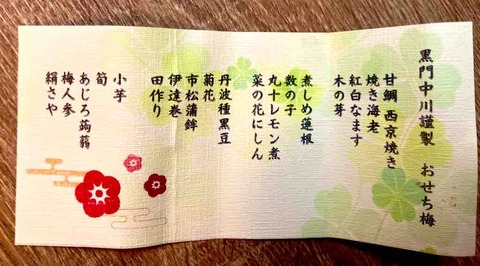 黒門中川謹製　おせち梅
甘鯛 西京焼き
焼き海老
紅白なます
木の芽
煮しめ蓮根
数の子
丸十レモン煮
菜の花にしん
丹波種黒豆
菊花
市松蒲鉾
伊達巻
田作り
小芋
筍
あじろ蒟蒻
梅人参
絹さや